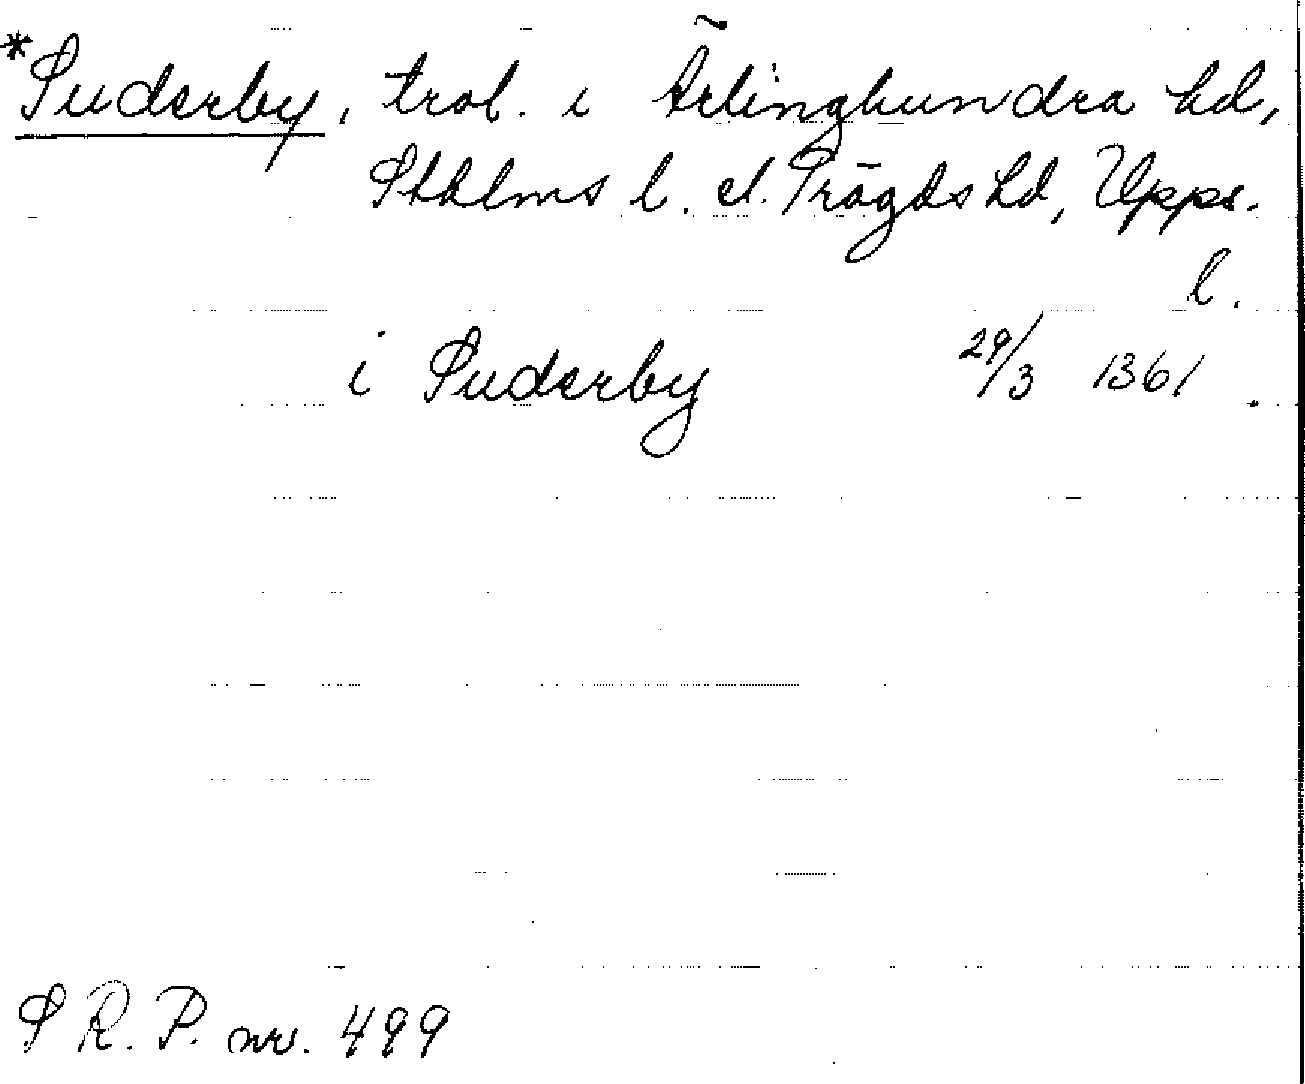 *Suderby, trol. i Ärlinghundra hd,
Sthlms l. el. Trögds hd, Upps.
l.
i Suderby 29/3 1361.
S R. P. nr. 499